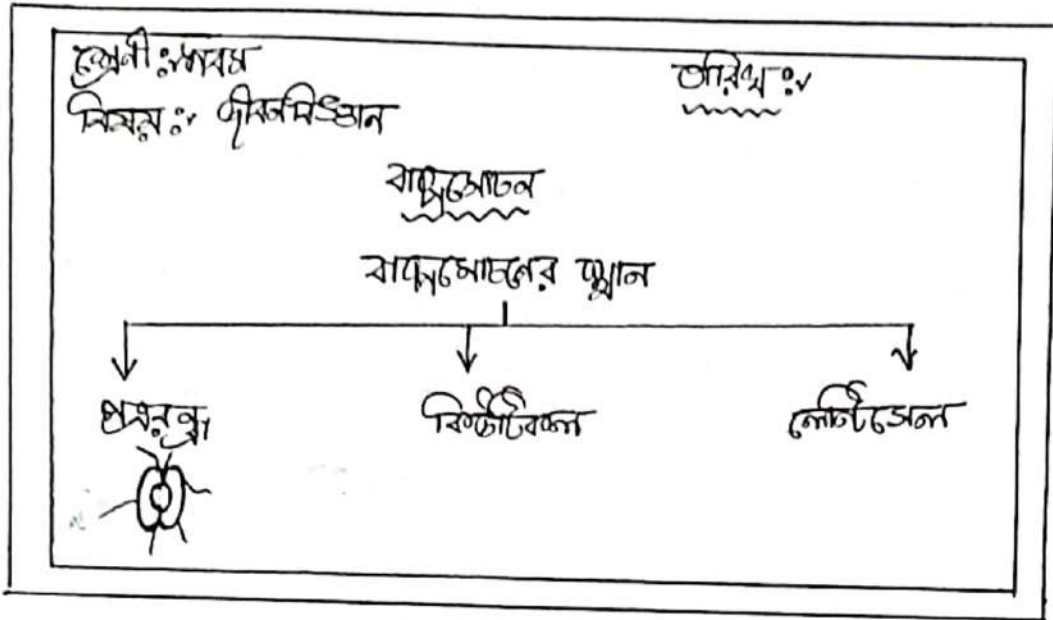 শ্রেণী :- নবম
তারিখ :-
বিষয় :- জীবনবিজ্ঞান
বাষ্পমোচন
বাষ্পমোচনের স্থান
পত্ররন্ধ্র কিউটিকল লেন্টিসেল